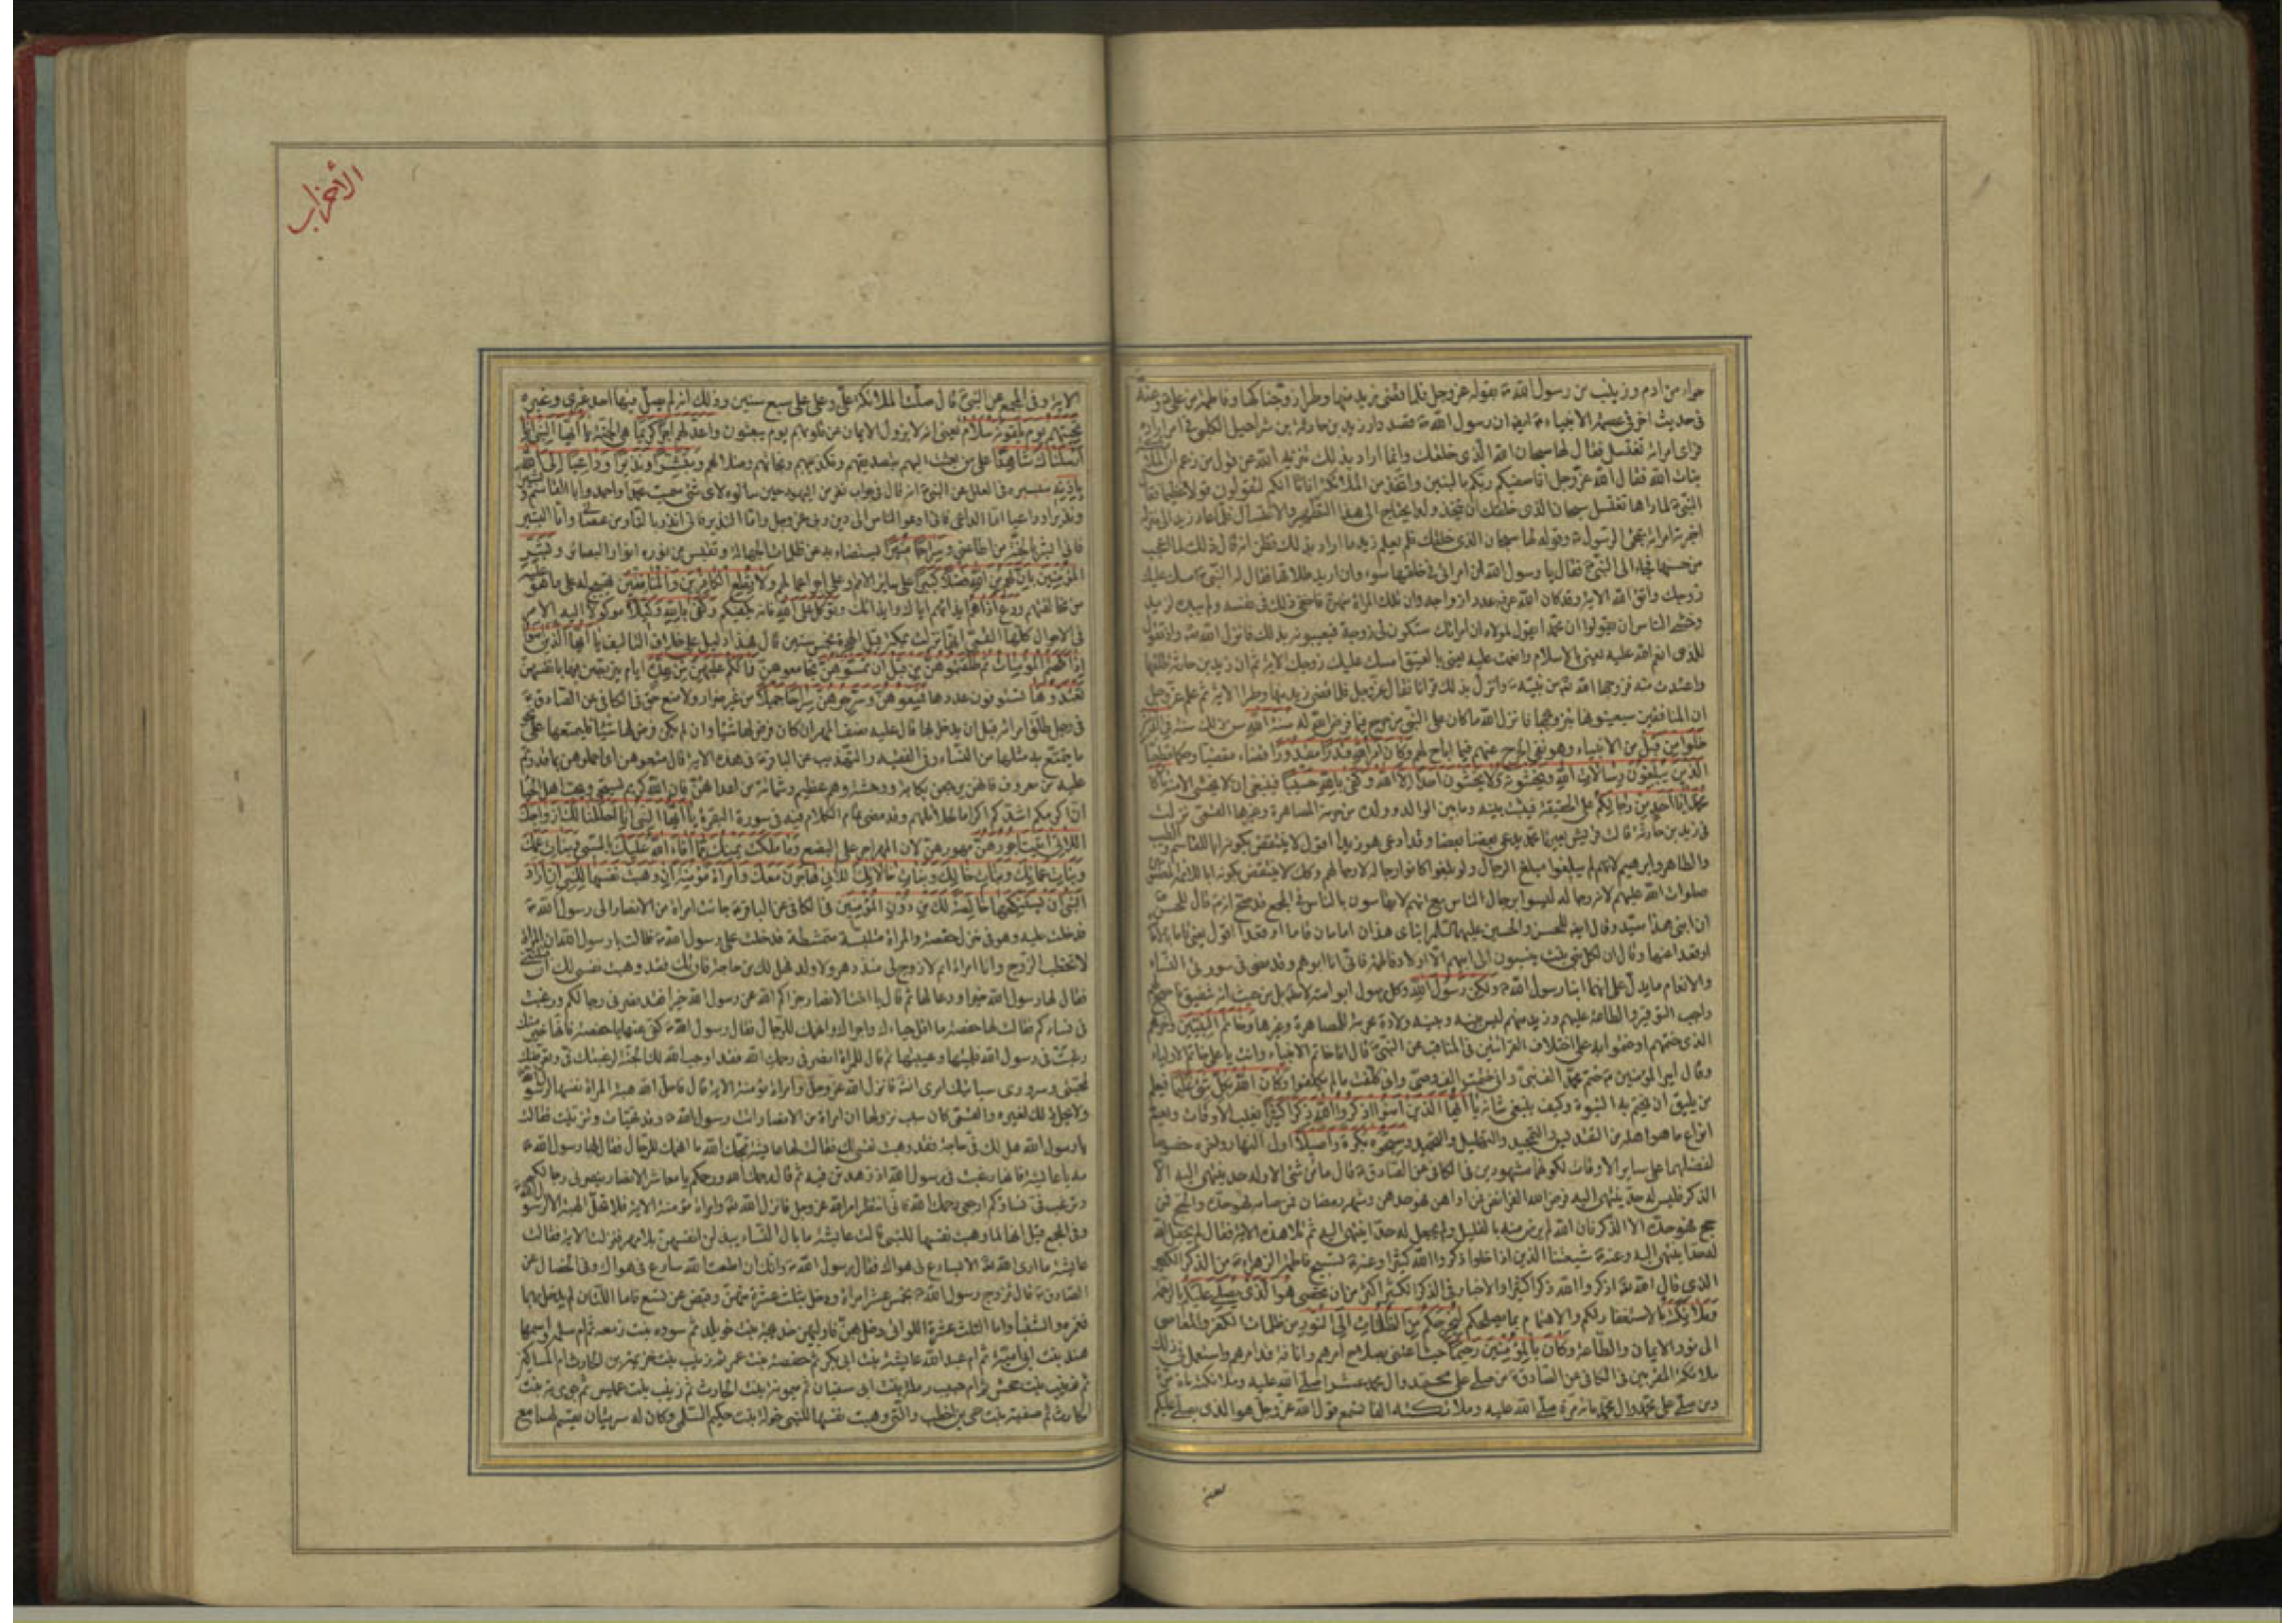 حواء من ادم وزينب من رسول الله ص بقوله عز وجل فلما قضى زيد منها وطرا زوجناكها وفاطمة من علي ع وعنه
في حديث اخر في عصمة الانبياء ع ايضا ان رسول الله ص قصد دار زيد بن حارثة بن شراحيل الكلبي في امر اراده
فراى امراته تغتسل فقال لها سبحان الله الذي خلقك وانما اراد بذلك تنزيه الله عن قول من زعم ان الملائكة
بنات الله فقال الله عز وجل افاصفيكم ربكم بالبنين واتخذ من الملائكة اناثا انكم لتقولون قولا عظيما فقال
النبي ص لما راها تغتسل سبحان الذي خلقك ان يتخذ ولدا يحتاج الى هذا التطهير والاغتسال فلما عاد زيد الى منزله
اخبرته امراته بمجئ الرسول ص وقوله لها سبحان الذي خلقك فلم يعلم زيد ما اراد بذلك فظن انه قال ذلك لما اعجبه
من حسنها فجاء الى النبي ص فقال يا رسول الله ان امراتي في خلقها سوء واني اريد طلاقها فقال له النبي ص امسك عليك
زوجك واتق الله الاية وقد كان الله عرفه عدد ازواجه وان تلك المراة منهن فاخفى ذلك في نفسه ولم يبده لزيد
وخشى الناس ان يقولوا ان محمدا يقول لمولاه ان امراتك ستكون لي زوجة فيعيبونه بذلك فانزل الله تع واذ تقول
للذي انعم الله عليه يعني بالاسلام وانعمت عليه يعني بالعتق امسك عليك زوجك الاية ثم ان زيد بن حارثة طلقها
واعتدت منه فزوجها الله تع من نبيه ص وانزل بذلك قرانا فقال عز وجل فلما قضى زيد منها وطرا الاية ثم علم عز وجل
ان المنافقين سيعيبونه بتزويجها فانزل الله ما كان على النبي من حرج فيما فرض الله له سنة الله سن ذلك سنة في الذين
خلوا من قبل من الانبياء وهو نفي الحرج عنهم فيما اباح لهم وكان امر الله قدرا مقدورا قضاء مقضيا وحكما قطعيا
الذين يبلغون رسالات الله ويخشونه ولا يخشون احدا الا الله وكفى بالله حسيبا فينبغي ان لا يخشى الا منه ما كان
محمد ابا احد من رجالكم على الحقيقة فيثبت بينه وبينه ما بين الوالد وولده من حرمة المصاهرة وغيرها القمي نزلت
في زيد بن حارثة قالت قريش يعيرنا محمد يدعي بعضنا بعضا وقد ادعى هو زيدا اقول لا ينتقض بكونه ابا للقاسم والطيب
والطاهر وابراهيم لانهم لم يبلغوا مبلغ الرجال ولو بلغوا كانوا رجاله لا رجالهم وكذلك لا ينتقض بكونه ابا للائمة المعصومين
صلوات الله عليهم لانهم رجاله ليسوا برجال الناس مع انهم لا يقاسون بالناس في المجمع قد صح انه ص قال للحسن ع
ان ابني هذا سيد وقال ايضا للحسن والحسين عليهما السلم ابناي هذان امامان قاما او قعدا اقول يعني قاما بالامامة
او قعدا عنها وقال ان كل بني بنت ينسبون الى ابيهم الا اولاد فاطمة فاني انا ابوهم وقد مضى في سورتي النساء
والانعام ما يدل على انهما ابنا رسول الله ص ولكن رسول الله وكل رسول ابو امته لا مطلقا بل من حيث انه شفيق ناصح لهم
واجب التوقير والطاعة عليهم وزيد منهم ليس بينه وبينه ولادة وخاتم النبيين واخرهم
الذي ختمهم او ختموا به على اختلاف القرائتين في المناقب عن النبي ص قال انا خاتم الانبياء وانت يا علي خاتم الاولياء
وقال امير المؤمنين ع ختم محمد الف نبي واني ختمت الف وصي واني كلفت ما لم يكلفوا وكان الله بكل شئ عليما فيعلم
من يليق ان يختم به النبوة وكيف ينبغي شانه يا ايها الذين امنوا اذكروا الله ذكرا كثيرا يغلب الاوقات ويعم
انواع ما هو اهله من التقديس والتمجيد والتهليل والتحميد وسبحوه بكرة واصيلا اول النهار واخره خصوصا
لفضلهما على ساير الاوقات لكونهما مشهودين في الكافي عن الصادق ع قال ما من شئ الا وله حد ينتهي اليه الا
الذكر فليس له حد ينتهي اليه فرض الله الفرائض فمن اداهن فهو حدهن وشهر رمضان فمن صامه فهو حده والحج فمن
حج فهو حده الا الذكر فان الله لم يرض منه بالقليل ولم يجعل له حدا ينتهي اليه ثم تلا هذه الاية فقال لم يجعل الله
له حدا ينتهي اليه وعنه ع شيعتنا الذين اذا خلوا ذكروا الله كثيرا وعنه ع تسبيح فاطمة الزهراء ع من الذكر الكثير
الذي قال الله تع اذكروا الله ذكرا كثيرا والاخبار في الذكر الكثير اكثر من ان تحصى هو الذي يصلي عليكم بالرحمة
وملائكته بالاستغفار لكم والاهتمام بما يصلحكم ليخرجكم من الظلمات الى النور من ظلمات الكفر والمعاصي
الى نور الايمان والطاعة وكان بالمؤمنين رحيما حيث اعتنى بصلاح امرهم وانافة قدرهم واستعمل في ذلك
ملائكته المقربين في الكافي عن الصادق ع من صلى على محمد وال محمد عشرا صلى الله عليه وملائكته مائة مرة
ومن صلى على محمد وال محمد مائة مرة صلى الله عليه وملائكته الفا اما تسمع قول الله عز وجل هو الذي يصلي عليكم
الأحزاب
الاية وفي المجمع عن النبي ص قال صلت الملائكة علي وعلى علي سبع سنين وذلك انه لم يصل فيها احد غيري وغيره
تحيتهم يوم يلقونه سلام يعني انه لا يزول الايمان عن قلوبهم يوم يبعثون واعد لهم اجرا كريما هي الجنة يا ايها النبي انا
ارسلناك شاهدا على من بعثت اليهم بتصديقهم وتكذيبهم ونجاتهم وضلالهم ومبشرا ونذيرا وداعيا الى الله
باذنه بتيسيره في العلل عن النبي ص انه قال في جواب نفر من اليهود حين سالوه لاي شئ سميت محمدا واحمد وابا القاسم وبشيرا
ونذيرا وداعيا اما الداعي فاني ادعو الناس الى دين ربي عز وجل واما النذير فاني انذر بالنار من عصاني واما البشير
فاني ابشر بالجنة من اطاعني وسراجا منيرا يستضاء به عن ظلمات الجهالة ويقتبس من نوره انوار البصائر وبشر
المؤمنين بان لهم من الله فضلا كبيرا على ساير الامم او على اجر اعمالهم ولا تطع الكافرين والمنافقين تهييج له على ما هو عليه
من مخالفتهم ودع اذاهم ايذائهم اياك وايذائك وتوكل على الله فانه يكفيكهم وكفى بالله وكيلا موكولا اليه الامر
في الاحوال كلها القمي انها نزلت بمكة قبل الهجرة بخمس سنين قال هذا دليل على خلاف التاليف يا ايها الذين امنوا
اذا نكحتم المؤمنات ثم طلقتموهن من قبل ان تمسوهن تجامعوهن فما لكم عليهن من عدة ايام يتربصن فيها بانفسهن
تعتدونها تستوفون عددها فمتعوهن وسرحوهن سراحا جميلا من غير ضرار ولا منع حق في الكافي عن الصادق ع
في رجل طلق امراته قبل ان يدخل بها قال عليه نصف المهر ان كان فرض لها شيئا وان لم يكن فرض لها شيئا فليمتعها على نحو
ما يتمتع به مثلها من النساء وفي الفقيه والتهذيب عن الباقر ع في هذه الاية قال متعوهن اي اجملوهن بما قدرتم
عليه من معروف فانهن يرجعن بكابة ووحشة وهم عظيم وشماتة من اعدائهن فان الله كريم يستحيي ويحب اهل الحياء
ان اكرمكم اشدكم اكراما لحلائلهم وقد مضى تمام الكلام فيه في سورة البقرة يا ايها النبي انا احللنا لك ازواجك
اللاتي اتيت اجورهن مهورهن لان المهر اجر على البضع وما ملكت يمينك مما افاء الله عليك بالسبي وبنات عمك
وبنات عماتك وبنات خالك وبنات خالاتك اللاتي هاجرن معك وامراة مؤمنة ان وهبت نفسها للنبي ان اراد
النبي ان يستنكحها خالصة لك من دون المؤمنين في الكافي عن الباقر ع جائت امراة من الانصار الى رسول الله ص
فدخلت عليه وهو في منزل حفصة والمراة متلبسة متمشطة فدخلت على رسول الله ص فقالت يا رسول الله ان المراة
لا تخطب الزوج وانا امراة ايم لا زوج لي منذ دهر ولا ولد فهل لك من حاجة فان تك فقد وهبت نفسي لك ان قبلتني
فقال لها رسول الله خيرا ودعا لها ثم قال يا اخت الانصار جزاكم الله عن رسول الله خيرا فقد نصرني رجالكم ورغبت
في نساءكم فقالت لها حفصة ما اقل حياءك واجراك وانهمك للرجال فقال رسول الله ص كفي عنها يا حفصة فانها خير منك
رغبت في رسول الله فلمتها وعيبتها ثم قال للمراة انصرفي رحمك الله فقد اوجب الله لك الجنة لرغبتك في وتعرضك
لمحبتي وسروري سياتيك امري انشاء الله فانزل الله عز وجل وامراة مؤمنة الاية قال فاحل الله هبة المراة نفسها لرسول الله
ولا يحل ذلك لغيره والقمي كان سبب نزولها ان امراة من الانصار اتت رسول الله ص وقد تهيات وتزينت فقالت
يا رسول الله هل لك في حاجة فقد وهبت نفسي لك فقالت لها عايشة قبحك الله ما انهمك للرجال فقال لها رسول الله ص
مه يا عايشة فانها رغبت في رسول الله اذ زهدتن فيه ثم قال رحمك الله ورحمكم يا معاشر الانصار نصرني رجالكم
ورغبت في نساؤكم ارجعي رحمك الله فاني انتظر امر الله عز وجل فانزل الله تع وامراة مؤمنة الاية فلا تحل الهبة الا لرسول الله
وفي المجمع قيل انها لما وهبت نفسها للنبي ص قالت عايشة ما بال النساء يبذلن انفسهن بلا مهر فنزلت الاية فقالت
عايشة ما ارى الله تع الا يسارع في هواك فقال رسول الله ص وانك ان اطعت الله سارع في هواك وفي الخصال عن
الصادق ع قال تزوج رسول الله ص بخمس عشر امراة ودخل بثلث عشرة منهن وقبض عن تسع فاما اللتان لم يدخل بهما
فعمرة والشنباء واما الثلث عشرة اللواتي دخل بهن فاولهن خديجة بنت خويلد ثم سوده بنت زمعه ثم ام سلمة واسمها
هند بنت ابي امية ثم ام عبد الله عايشة بنت ابي بكر ثم حفصة بنت عمر ثم زينب بنت خزيمة بن الحارث ام المساكين
ثم زينب بنت جحش ثم ام حبيب رملة بنت ابي سفيان ثم ميمونة بنت الحارث ثم زينب بنت عميس ثم جويرية بنت
الحارث ثم صفية بنت حي بن اخطب والتي وهبت نفسها للنبي خولة بنت حكيم السلمي وكان له سريتان يقسم لهما مع